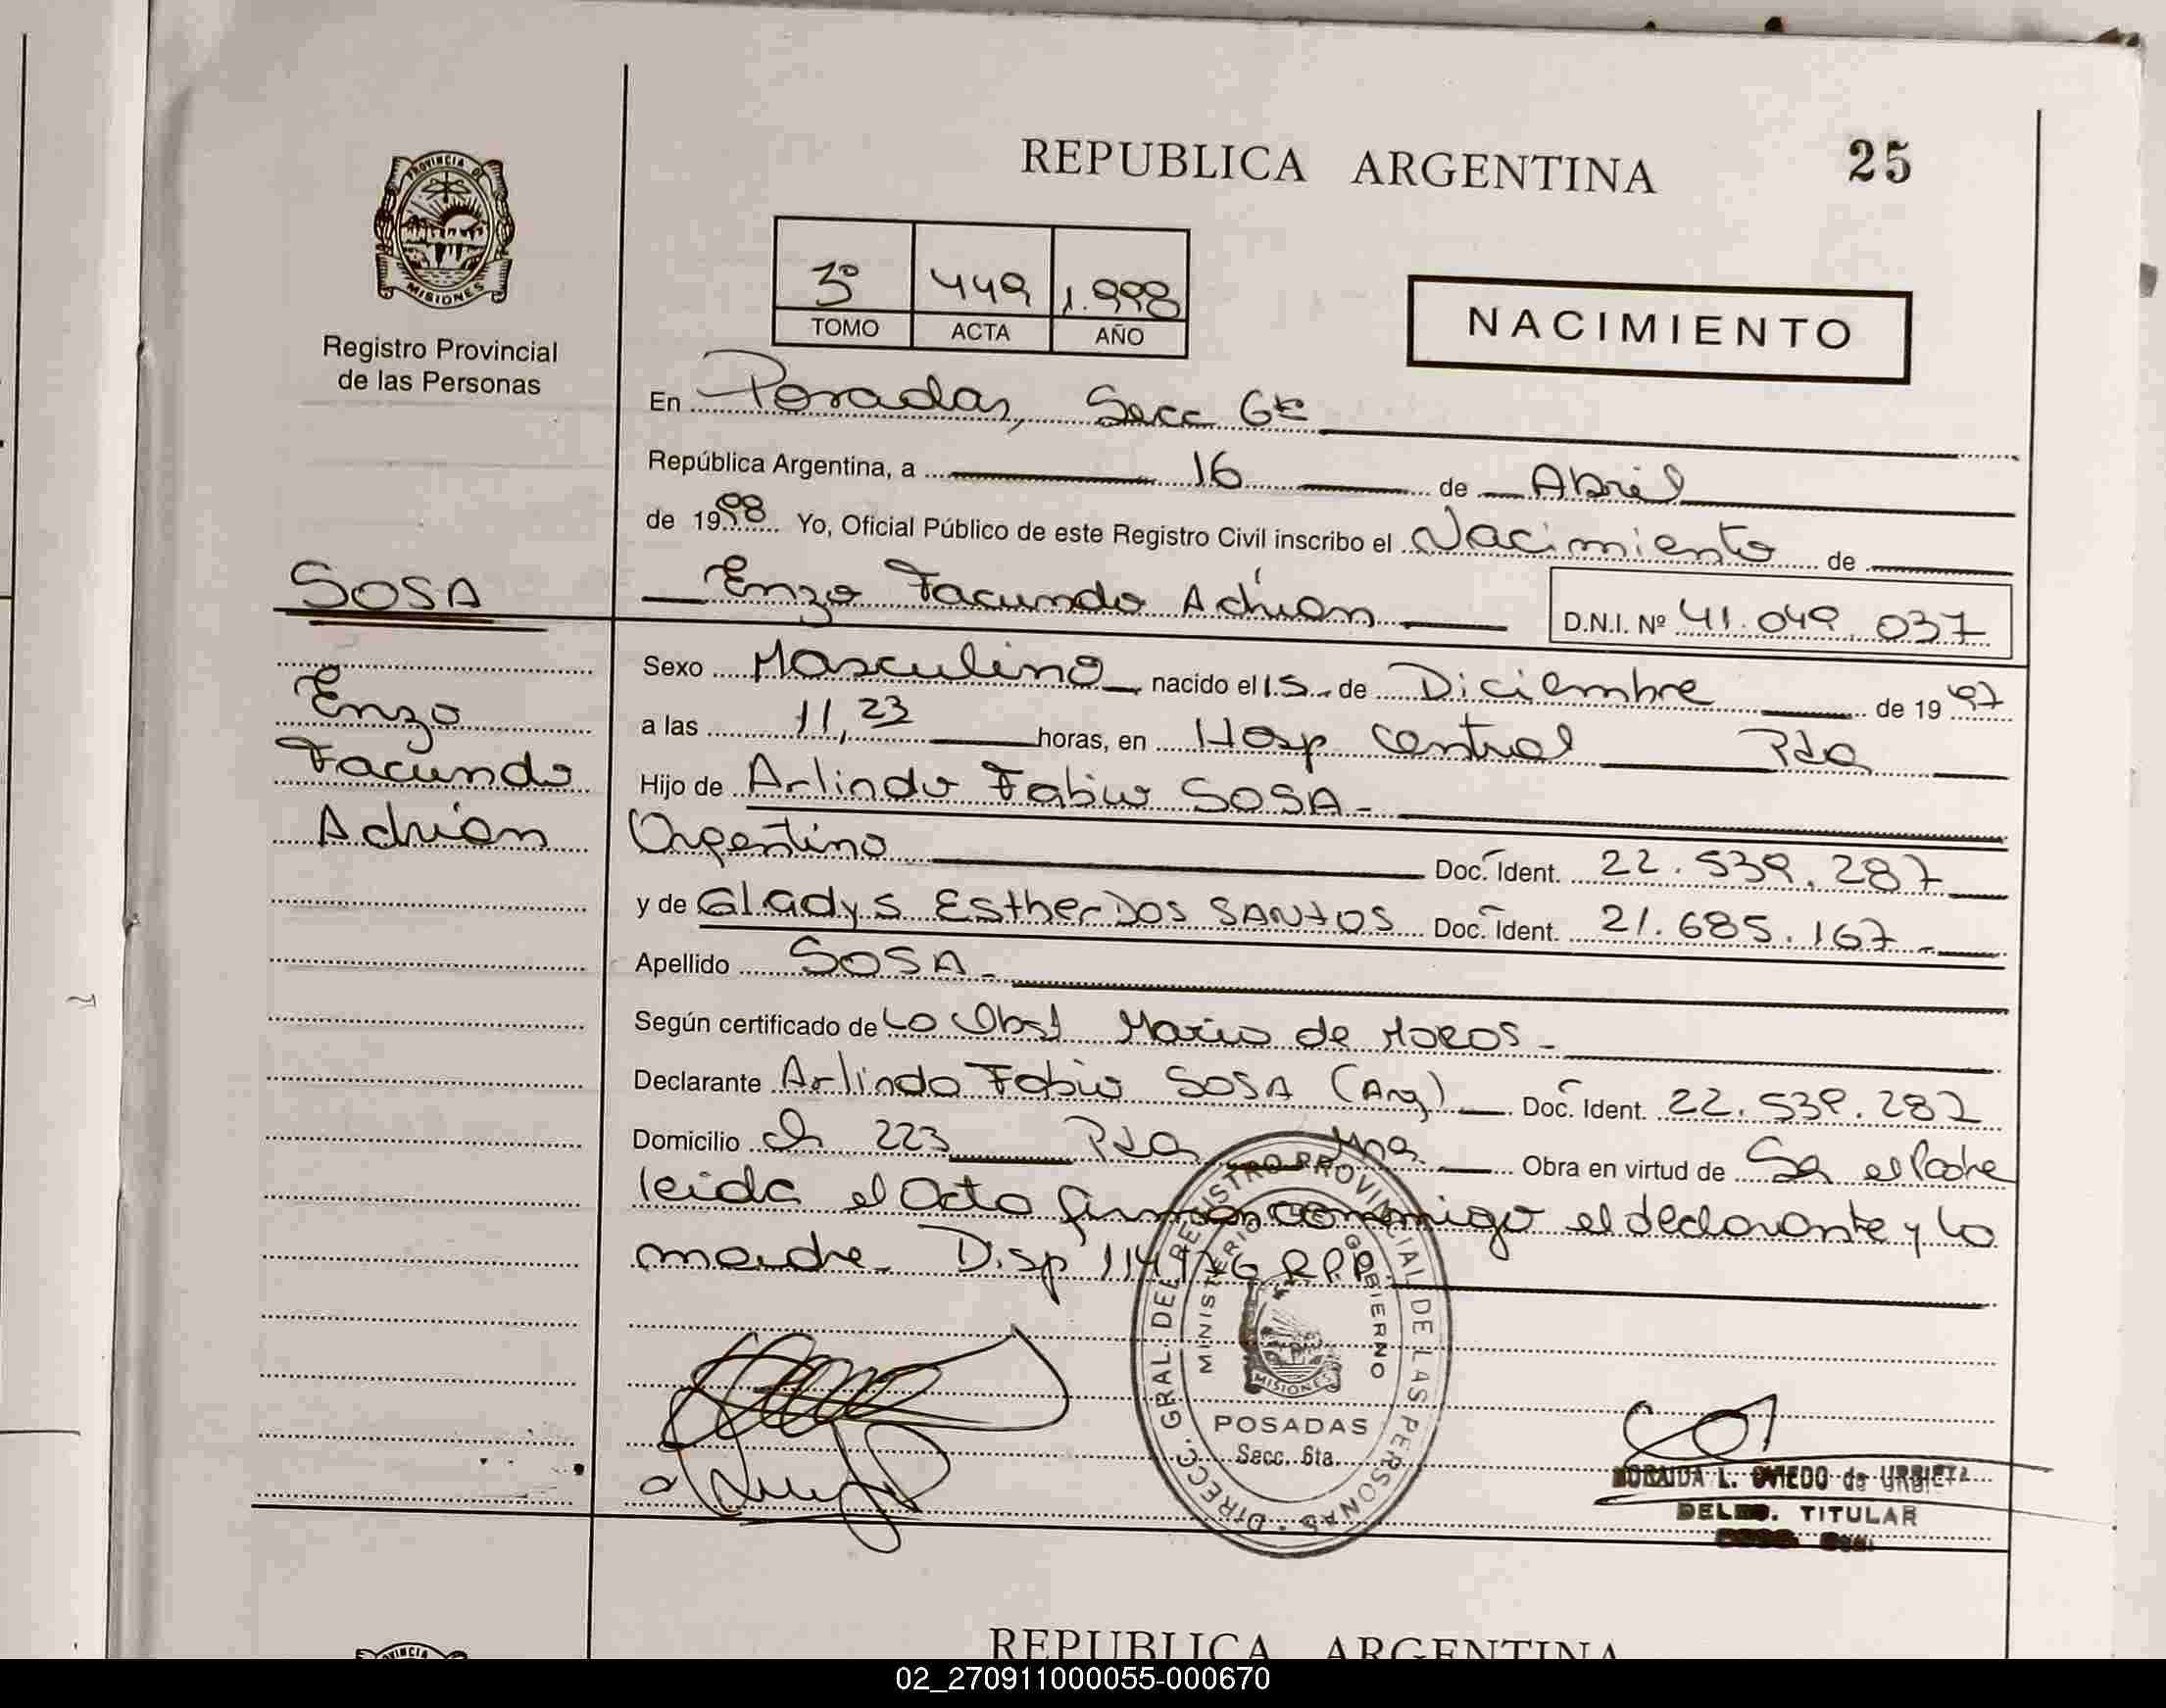 REPUBLICA ARGENTINA 25
PROVINCIA DE
MISIONES
Registro Provincial
de las Personas
3º 449 1.998
TOMO ACTA AÑO
NACIMIENTO
En Posadas, Secc 6ta
República Argentina, a 16 de Abril
de 1998 Yo, Oficial Público de este Registro Civil inscribo el Nacimiento de
SOSA
Enzo Facundo Adrián D.N.I. Nº 41.049.037
Enzo
Facundo
Adrián
Sexo Masculino nacido el 15 de Diciembre de 1997
a las 11,23 horas, en Hosp Central Pdas
Hijo de Arlindo Fabio SOSA-
Argentino Doc. Ident. 22.539.287
y de Gladys Esther DOS SANTOS Doc. Ident. 21.685.167-
Apellido SOSA-
Según certificado de La Obst Maria de
Declarante Arlindo Fabio SOSA (Arg) Doc. Ident. 22.539.287
Domicilio Ch 223 Pdas Mnes Obra en virtud de Ser el Padre
leida el Acta firman conmigo el declarante y la
madre- Disp 114/976 RPP
DIRECC. GRAL. DEL REGISTRO PROVINCIAL DE LAS PERSONAS
MINISTERIO DE GOBIERNO
MISIONES
POSADAS
Secc. 6ta.
L. OVIEDO de URBIETA
TITULAR
REPUBLICA ARGENTINA
02_270911000055-000670